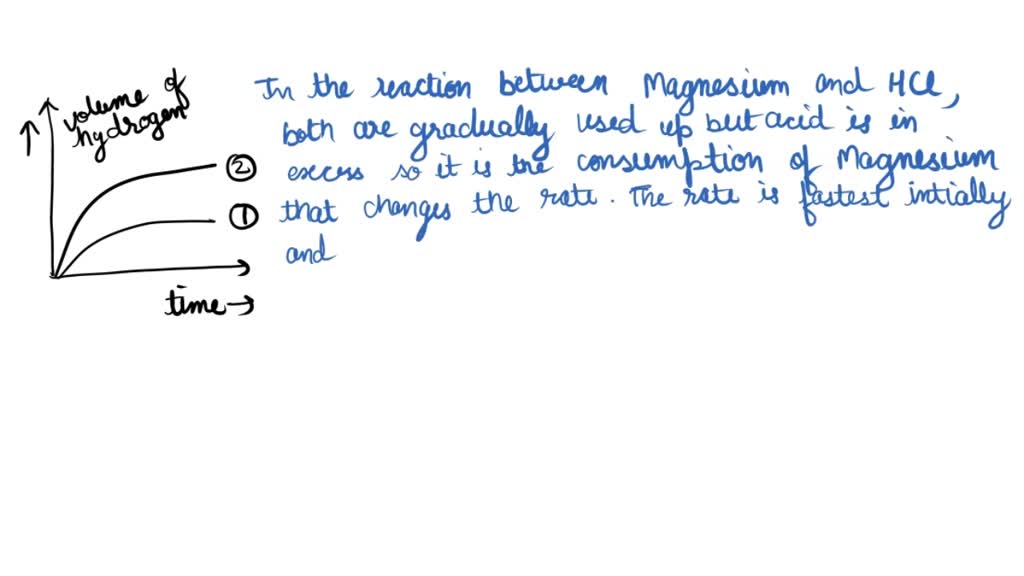 ↑ volume of
hydrogen
②
①
time →
In the reaction between Magnesium and HCl,
both are gradually used up but acid is in
excess so it is the consumption of Magnesium
that changes the rate. The rate is fastest intially
and